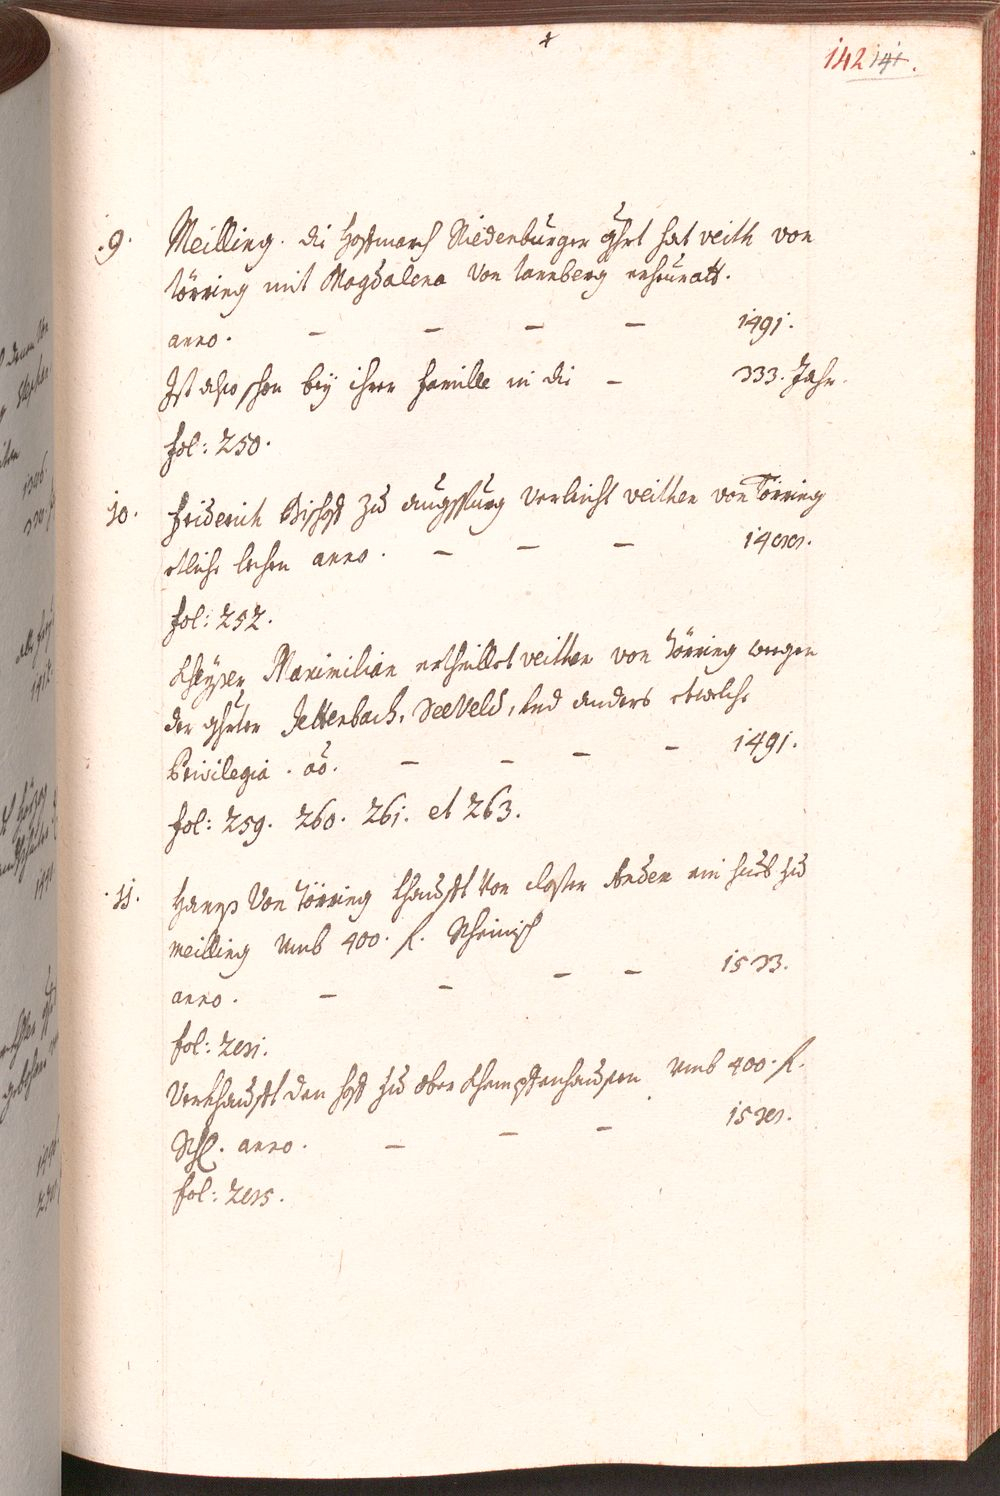 142 141.
.9. Meilling. die Hofmarch Riedenburger ghrt hat veith von
törring mit Magdalena von tannberg erheuratt.
anno. – – – – 1491.
Ist also schon beÿ ihrer Familie in die – 333. Jahr.
fol: 250.
10. Friderich Bischof zu augspurg verleicht veithen von Törring
etliche lechen anno. – – – 1488.
fol: 252.
Khaÿser Maximilian ertheillet veithen von törring wegen
der ghrter Jettenbach, Seeveld, und anders etwelche
Privilegia. ao. – – – – 1491.
fol: 259. 260. 261. et 263.
.11. Hannß Von Törring khaufft Von closter Ander ein hueb zu
meilling umb 400. fl. Rheinisch
anno. – – – – 1533.
fol: 281.
Verkhaufft den hof zu ober Khempfenhaußen umb 400. fl.
Rh. anno. – – – 1538.
fol: 285.